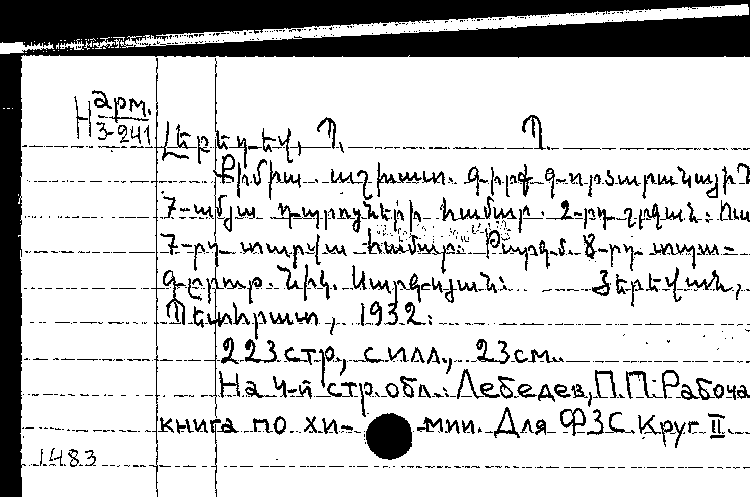 Н арм.
3-241
Լեբեդեվ, Պ. Պ.
Քիմիա. աշխատ. գիրք գործարանային
7-ամյա դպրոցների համար. 2-րդ շրջան:
7-րդ տարվա համար: Թարգմ. 8-րդ տպա-
գրութ. Նիկ. Սարգսյան: Յերեվան,
Պետհրատ, 1932:
223 стр., с илл., 23 см.
На 4-й стр. обл.: Лебедев, П.П. Рабоча
книга по хи- -мии. Для ФЗС. Круг II.
1483